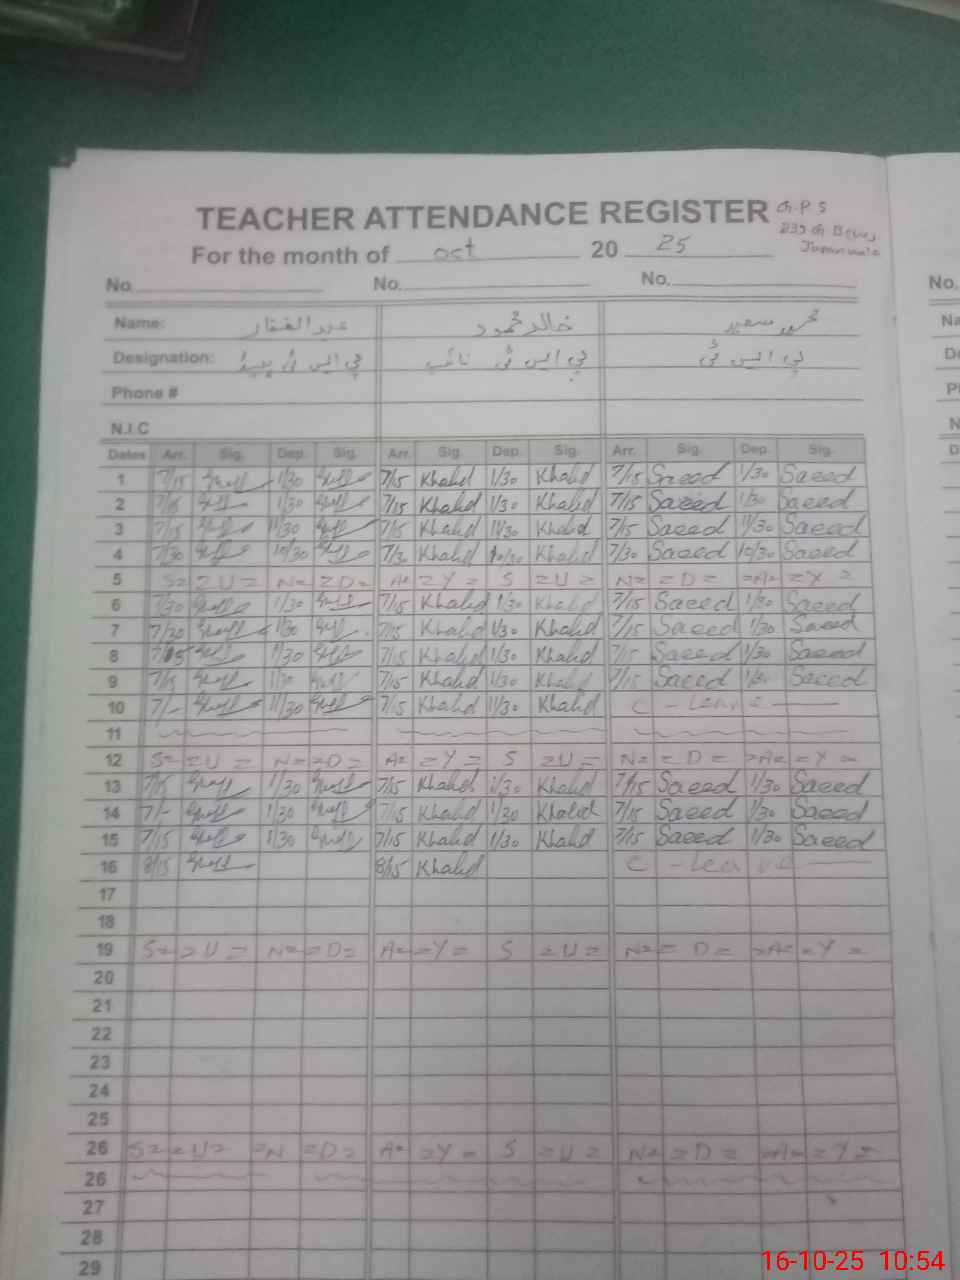 TEACHER ATTENDANCE REGISTER G.P.S
For the month of oct 20 25
No. No. No. No.
Name: عبدالغفار خالد محمود محمد سعید
Designation: پی ایس ٹی ہیڈ پی ایس ٹی نائب پی ایس ٹی
Phone #
N.I.C
Dates Arr. Sig. Dep. Sig. Arr. Sig. Dep. Sig. Arr. Sig. Dep. Sig.
1 7/15 1/30 7/15 Khalid 1/30 Khalid 7/15 Saeed 1/30 Saeed
2 7/15 1/30 7/15 Khalid 1/30 Khalid 7/15 Saeed 1/30 Saeed
3 7/15 11/30 7/15 Khalid 11/30 Khalid 7/15 Saeed 11/30 Saeed
4 7/30 10/30 7/30 Khalid 10/30 Khalid 7/30 Saeed 10/30 Saeed
5 S = = U = N = = D = A = = Y = S = U = N = = D = = A = = Y =
6 7/30 1/30 7/15 Khalid 1/30 Khalid 7/15 Saeed 1/30 Saeed
7 7/30 1/30 7/15 Khalid 1/30 Khalid 7/15 Saeed 1/30 Saeed
8 7/15 1/30 7/15 Khalid 1/30 Khalid 7/15 Saeed 1/30 Saeed
9 7/15 1/30 7/15 Khalid 1/30 Khalid 7/15 Saeed 1/30 Saeed
10 7/- 11/30 7/15 Khalid 11/30 Khalid C - Leave
11
12 S = = U = N = = D = A = = Y = S = U = N = = D = = A = = Y =
13 7/15 1/30 7/15 Khalid 1/30 Khalid 7/15 Saeed 1/30 Saeed
14 7/- 1/30 7/15 Khalid 1/30 Khalid 7/15 Saeed 1/30 Saeed
15 7/15 1/30 7/15 Khalid 1/30 Khalid 7/15 Saeed 1/30 Saeed
16 8/15 8/15 Khalid C - Leave
17
18
19 S = = U = N = = D = A = = Y = S = U = N = = D = = A = = Y =
20
21
22
23
24
25
26 S = = U = = N = D = A = = Y = S = U = N = = D = = A = = Y =
26
27
28
29
16-10-25 10:54